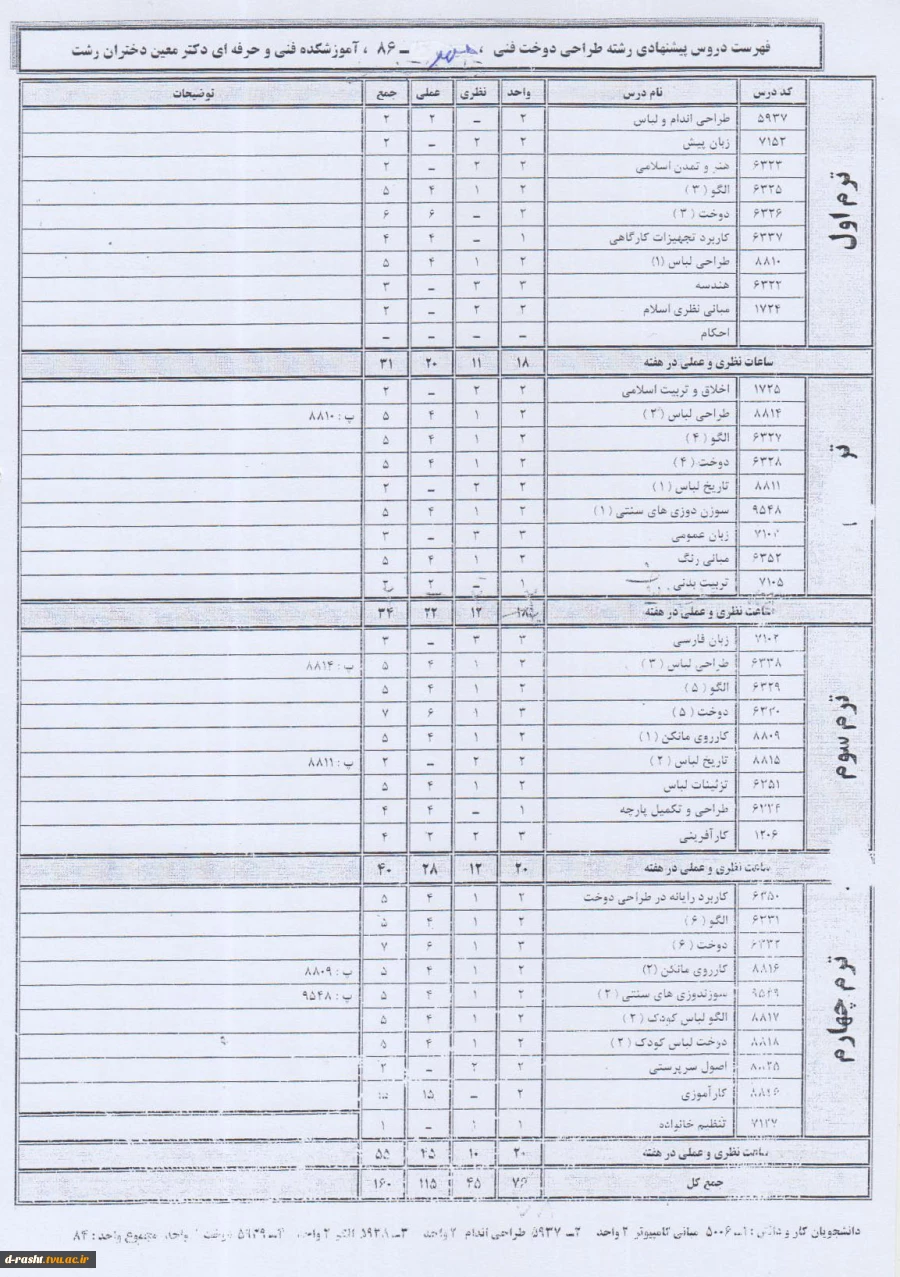 فهرست دروس پیشنهادی رشته طراحی دوخت فنی ، ـ ۸۶ ، آموزشکده فنی و حرفه ای دکتر معین دختران رشت
کد درس نام درس واحد نظری عملی جمع توضیحات
ترم اول
۵۹۳۷ طراحی اندام و لباس ۲ ـ ۲ ۲
۷۱۵۲ زبان پیش ۲ ۲ ـ ۲
۶۳۲۳ هنر و تمدن اسلامی ۲ ۲ ـ ۲
۶۳۲۵ الگو (۳) ۲ ۱ ۴ ۵
۶۳۲۶ دوخت (۳) ۲ ـ ۶ ۶
۶۳۳۷ کاربرد تجهیزات کارگاهی ۱ ـ ۴ ۴
۸۸۱۰ طراحی لباس (۱) ۲ ۱ ۴ ۵
۶۳۲۲ هندسه ۳ ۳ ـ ۳
۱۷۲۴ مبانی نظری اسلام ۲ ۲ ـ ۲
احکام ـ ـ ـ ـ
ساعات نظری و عملی در هفته ۱۸ ۱۱ ۲۰ ۳۱
تر
۱۷۲۵ اخلاق و تربیت اسلامی ۲ ۲ ـ ۲
۸۸۱۴ طراحی لباس (۲) ۲ ۱ ۴ ۵ پ : ۸۸۱۰
۶۳۲۷ الگو (۴) ۲ ۱ ۴ ۵
۶۳۲۸ دوخت (۴) ۲ ۱ ۴ ۵
۸۸۱۱ تاریخ لباس (۱) ۲ ۲ ـ ۲
۹۵۴۸ سوزن دوزی های سنتی (۱) ۲ ۱ ۴ ۵
زبان عمومی ۳ ۳ ـ ۳
۶۳۵۲ مبانی رنگ ۲ ۱ ۴ ۵
۷۱۰۵ تربیت بدنی ۱ ـ ۲ ۲
ساعت نظری و عملی در هفته ۱۸ ۱۲ ۲۲ ۳۴
ترم سوم
۷۱۰۲ زبان فارسی ۳ ۳ ـ ۳
۶۳۳۸ طراحی لباس (۳) ۲ ۱ ۴ ۵ پ : ۸۸۱۴
۶۳۲۹ الگو (۵) ۲ ۱ ۴ ۵
۶۳۳۰ دوخت (۵) ۳ ۱ ۶ ۷
۸۸۰۹ کارروی مانکن (۱) ۲ ۱ ۴ ۵
۸۸۱۵ تاریخ لباس (۲) ۲ ۲ ـ ۲ پ : ۸۸۱۱
۶۲۵۱ تزئینات لباس ۲ ۱ ۴ ۵
طراحی و تکمیل پارچه ۱ ـ ۴ ۴
۱۲۰۶ کارآفرینی ۳ ۲ ۲ ۴
ساعت نظری و عملی در هفته ۲۰ ۱۲ ۲۸ ۴۰
ترم چهارم
۶۳۵۰ کاربرد رایانه در طراحی دوخت ۲ ۱ ۴ ۵
۶۳۳۱ الگو (۶) ۲ ۱ ۴ ۵
۶۳۳۲ دوخت (۶) ۳ ۱ ۶ ۷
۸۸۱۶ کارروی مانکن (۲) ۲ ۱ ۴ ۵ پ : ۸۸۰۹
۹۵۴۹ سوزندوزی های سنتی (۲) ۲ ۱ ۴ ۵ پ : ۹۵۴۸
۸۸۱۷ الگو لباس کودک (۲) ۲ ۱ ۴ ۵
۸۸۱۸ دوخت لباس کودک (۲) ۲ ۱ ۴ ۵
اصول سرپرستی ۲ ۲ ـ ۲
کارآموزی ۲ ـ ۱۵ ۱۵
۷۱۲۷ تنظیم خانواده ۱ ۱ ـ ۱
ساعت نظری و عملی در هفته ۲۰ ۱۰ ۴۵ ۵۵
جمع کل ۷۶ ۴۵ ۱۱۵ ۱۶۰
دانشجویان کار و دانش : ۱ـ ۵۰۰۶ مبانی کامپیوتر ۲ واحد ۲ـ ۵۹۳۷ طراحی اندام ۲ واحد ۳ـ الگو ۲ واحد دوخت واحد مجموع واحد : ۸۴
d-rasht.tvu.ac.ir